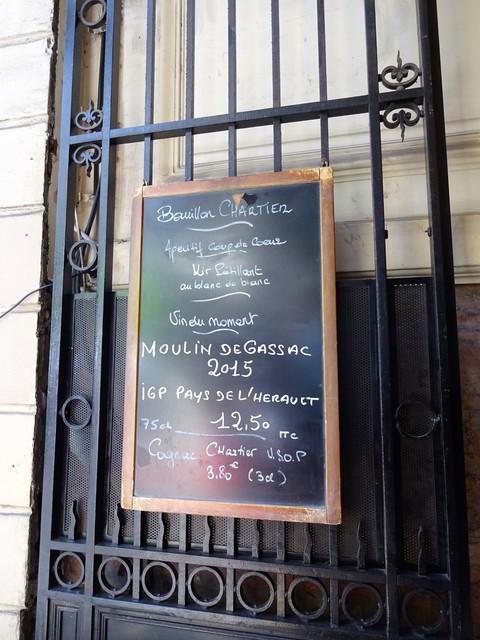 Bouillon CHARTIER
Apéritif Coup de Coeur
Kir Pétillant
au blanc de blanc
Vin du moment
MOULIN DE GASSAC
2015
IGP PAYS DE L'HERAULT
75cl 12,50 TTC
Cognac Chartier V.S.O.P
3.80€ (3cl)